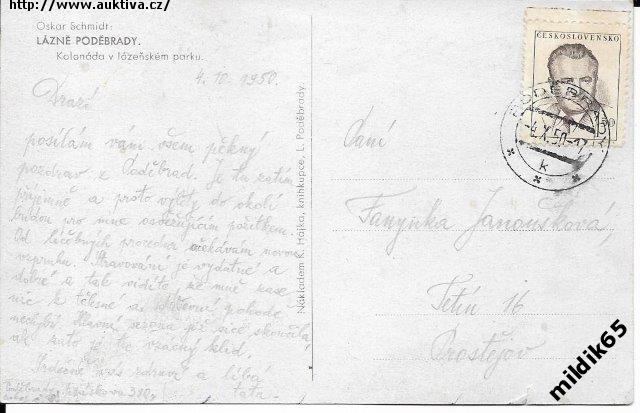 http://www.auktiva.cz/
Oskar Schmidt:
LÁZNĚ PODĚBRADY.
Kolonáda v lázeňském parku.
4. 10. 1950.
Drazí
posílám vám všem pěkný
pozdrav z Poděbrad. Je tu zatím
příjemně a proto výlety do okolí
budou pro mne osvěžujícím požitkem.
Od léčebných procedur očekávám novou
vzpruhu. Stravování je vydatné a
dobré a tak vidíte, že mně zase
nic k tělesné a duševní pohodě
nechybí. Hlavní sezona již sice skončila,
ale zato je tu vzácný klid.
Srdečně vás zdraví a líbá
táta.
Poděbrady,
Nákladem K. Hájka, knihkupce, L. Poděbrady.
ČESKOSLOVENSKO
PODĚBRADY
-4.X.50-17
k
Paní
Fanynka Janoušková,
Tetín 16
Prostějov
mildik65